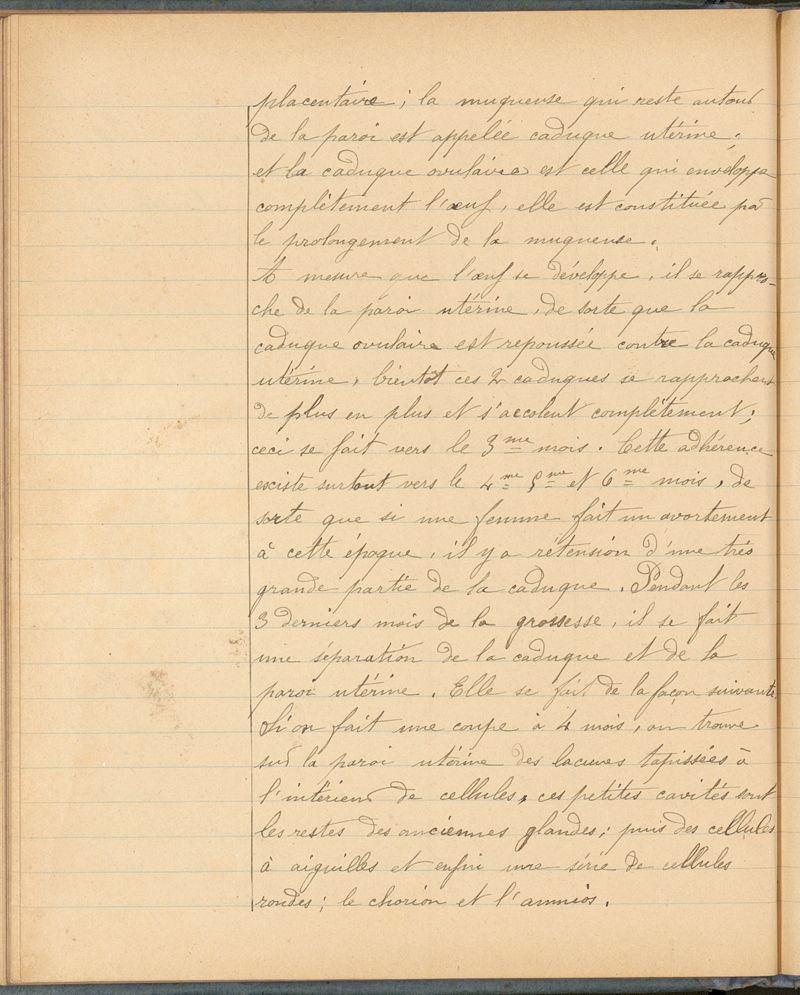 placentaire ; la muqueuse qui reste autour
de la paroi est appelée caduque utérine,
et la caduque ovulaire est celle qui enveloppe
complètement l'œuf, elle est constituée par
le prolongement de la muqueuse.
A mesure que l'œuf se développe, il se rappro-
che de la paroi utérine, de sorte que la
caduque ovulaire est repoussée contre la caduque
utérine, bientôt ces 2 caduques se rapprochent
de plus en plus et s'accolent complètement ;
ceci se fait vers le 3me mois. Cette adhérence
esciste surtout vers le 4me 5me et 6me mois, de
sorte que si une femme fait un avortement
à cette époque, il y a rétension d'une très
grande partie de la caduque. Pendant les
3 derniers mois de la grossesse, il se fait
une séparation de la caduque et de la
paroi utérine. Elle se fait de la façon suivante
Si on fait une coupe à 4 mois, on trouve
sur la paroi utérine des lacunes tapissées à
l'intérieur de cellules, ces petites cavités sont
les restes des anciennes glandes ; puis des cellules
à aiguilles et enfin une série de cellules
rondes ; le chorion et l'amnios.